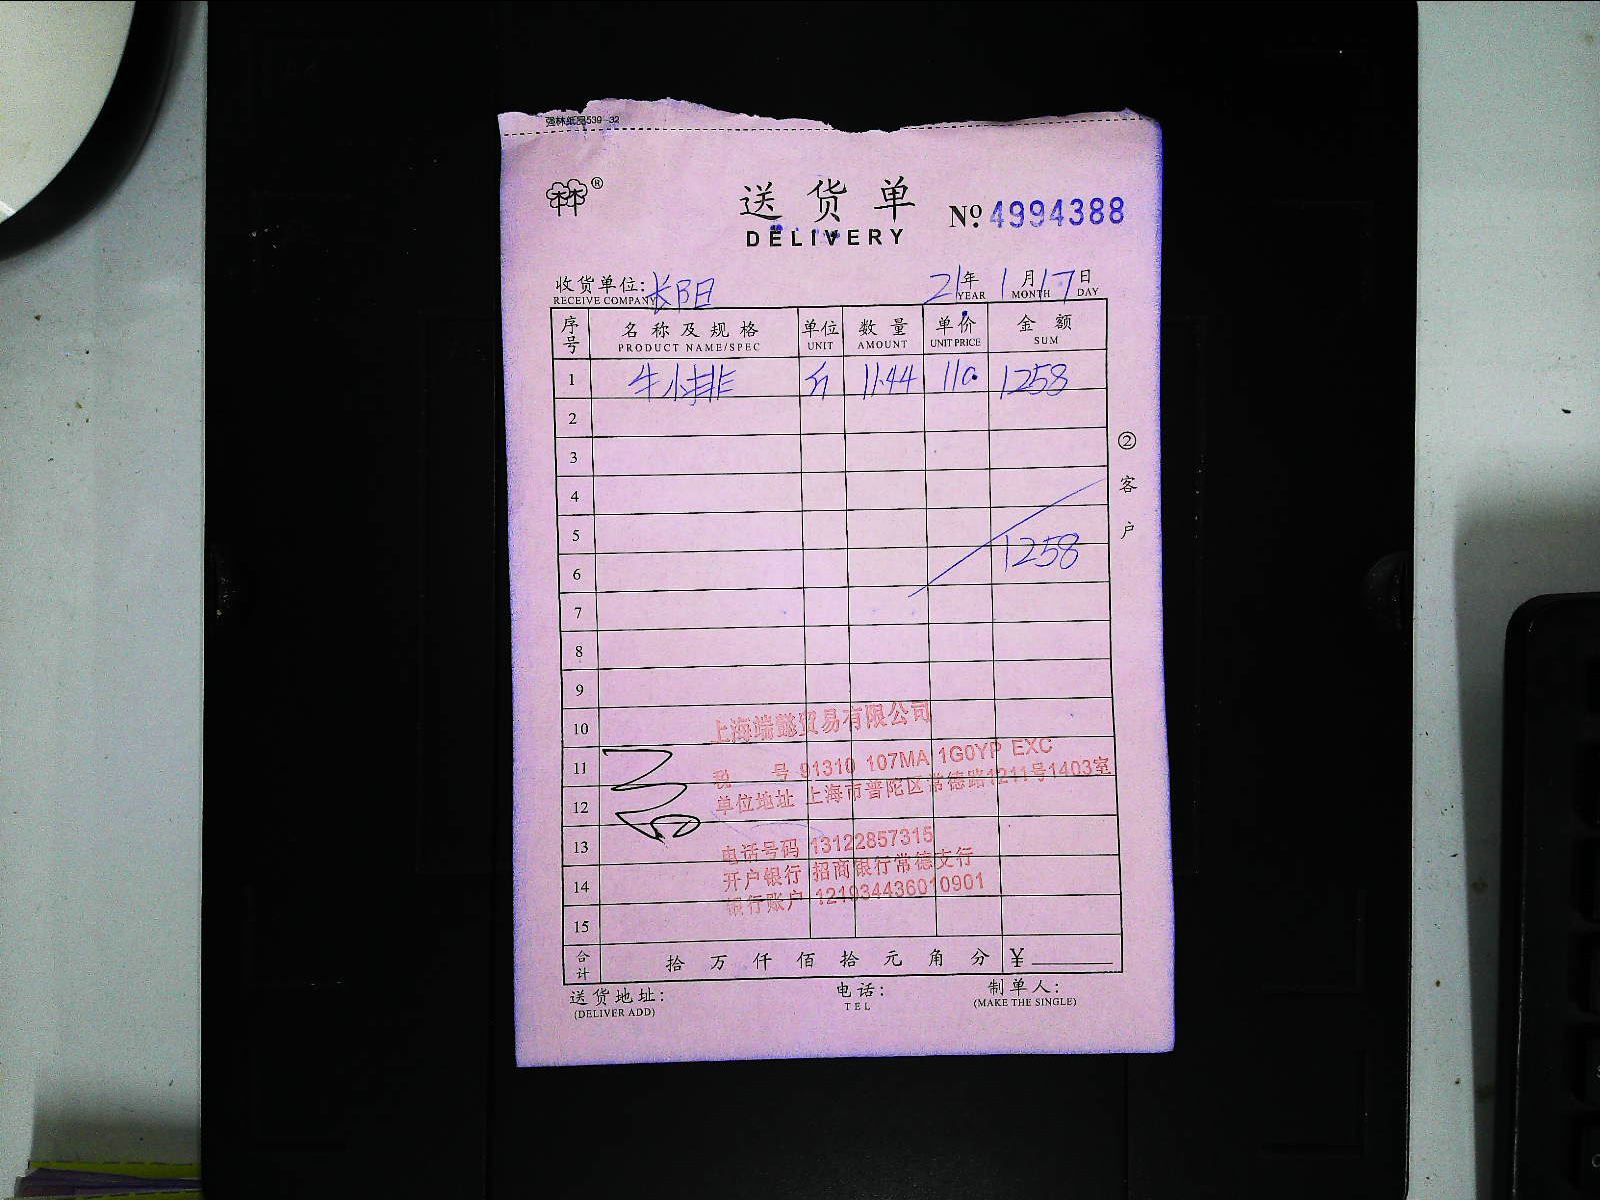 强林纸品539-32
®
送货单
DELIVERY
№ 4994388
收货单位: 长阳 21年 1月17日
RECEIVE COMPANY YEAR MONTH DAY
序号 名称及规格 单位 数量 单价 金额
PRODUCT NAME/SPEC UNIT AMOUNT UNIT PRICE SUM
1 牛小排 斤 11.44 110. 1258
2
3
4
5
6 1258
7
8
9
10
11
12
13
14
15
② 客户
上海端懿贸易有限公司
税 号 91310 107MA 1G0YP EXC
单位地址 上海市普陀区常德路1211号1403室
电话号码 13122857315
开户银行 招商银行常德支行
银行账户 121934436010901
合计 拾 万 仟 佰 拾 元 角 分 ¥
送货地址: 电话: 制单人:
(DELIVER ADD) TEL (MAKE THE SINGLE)